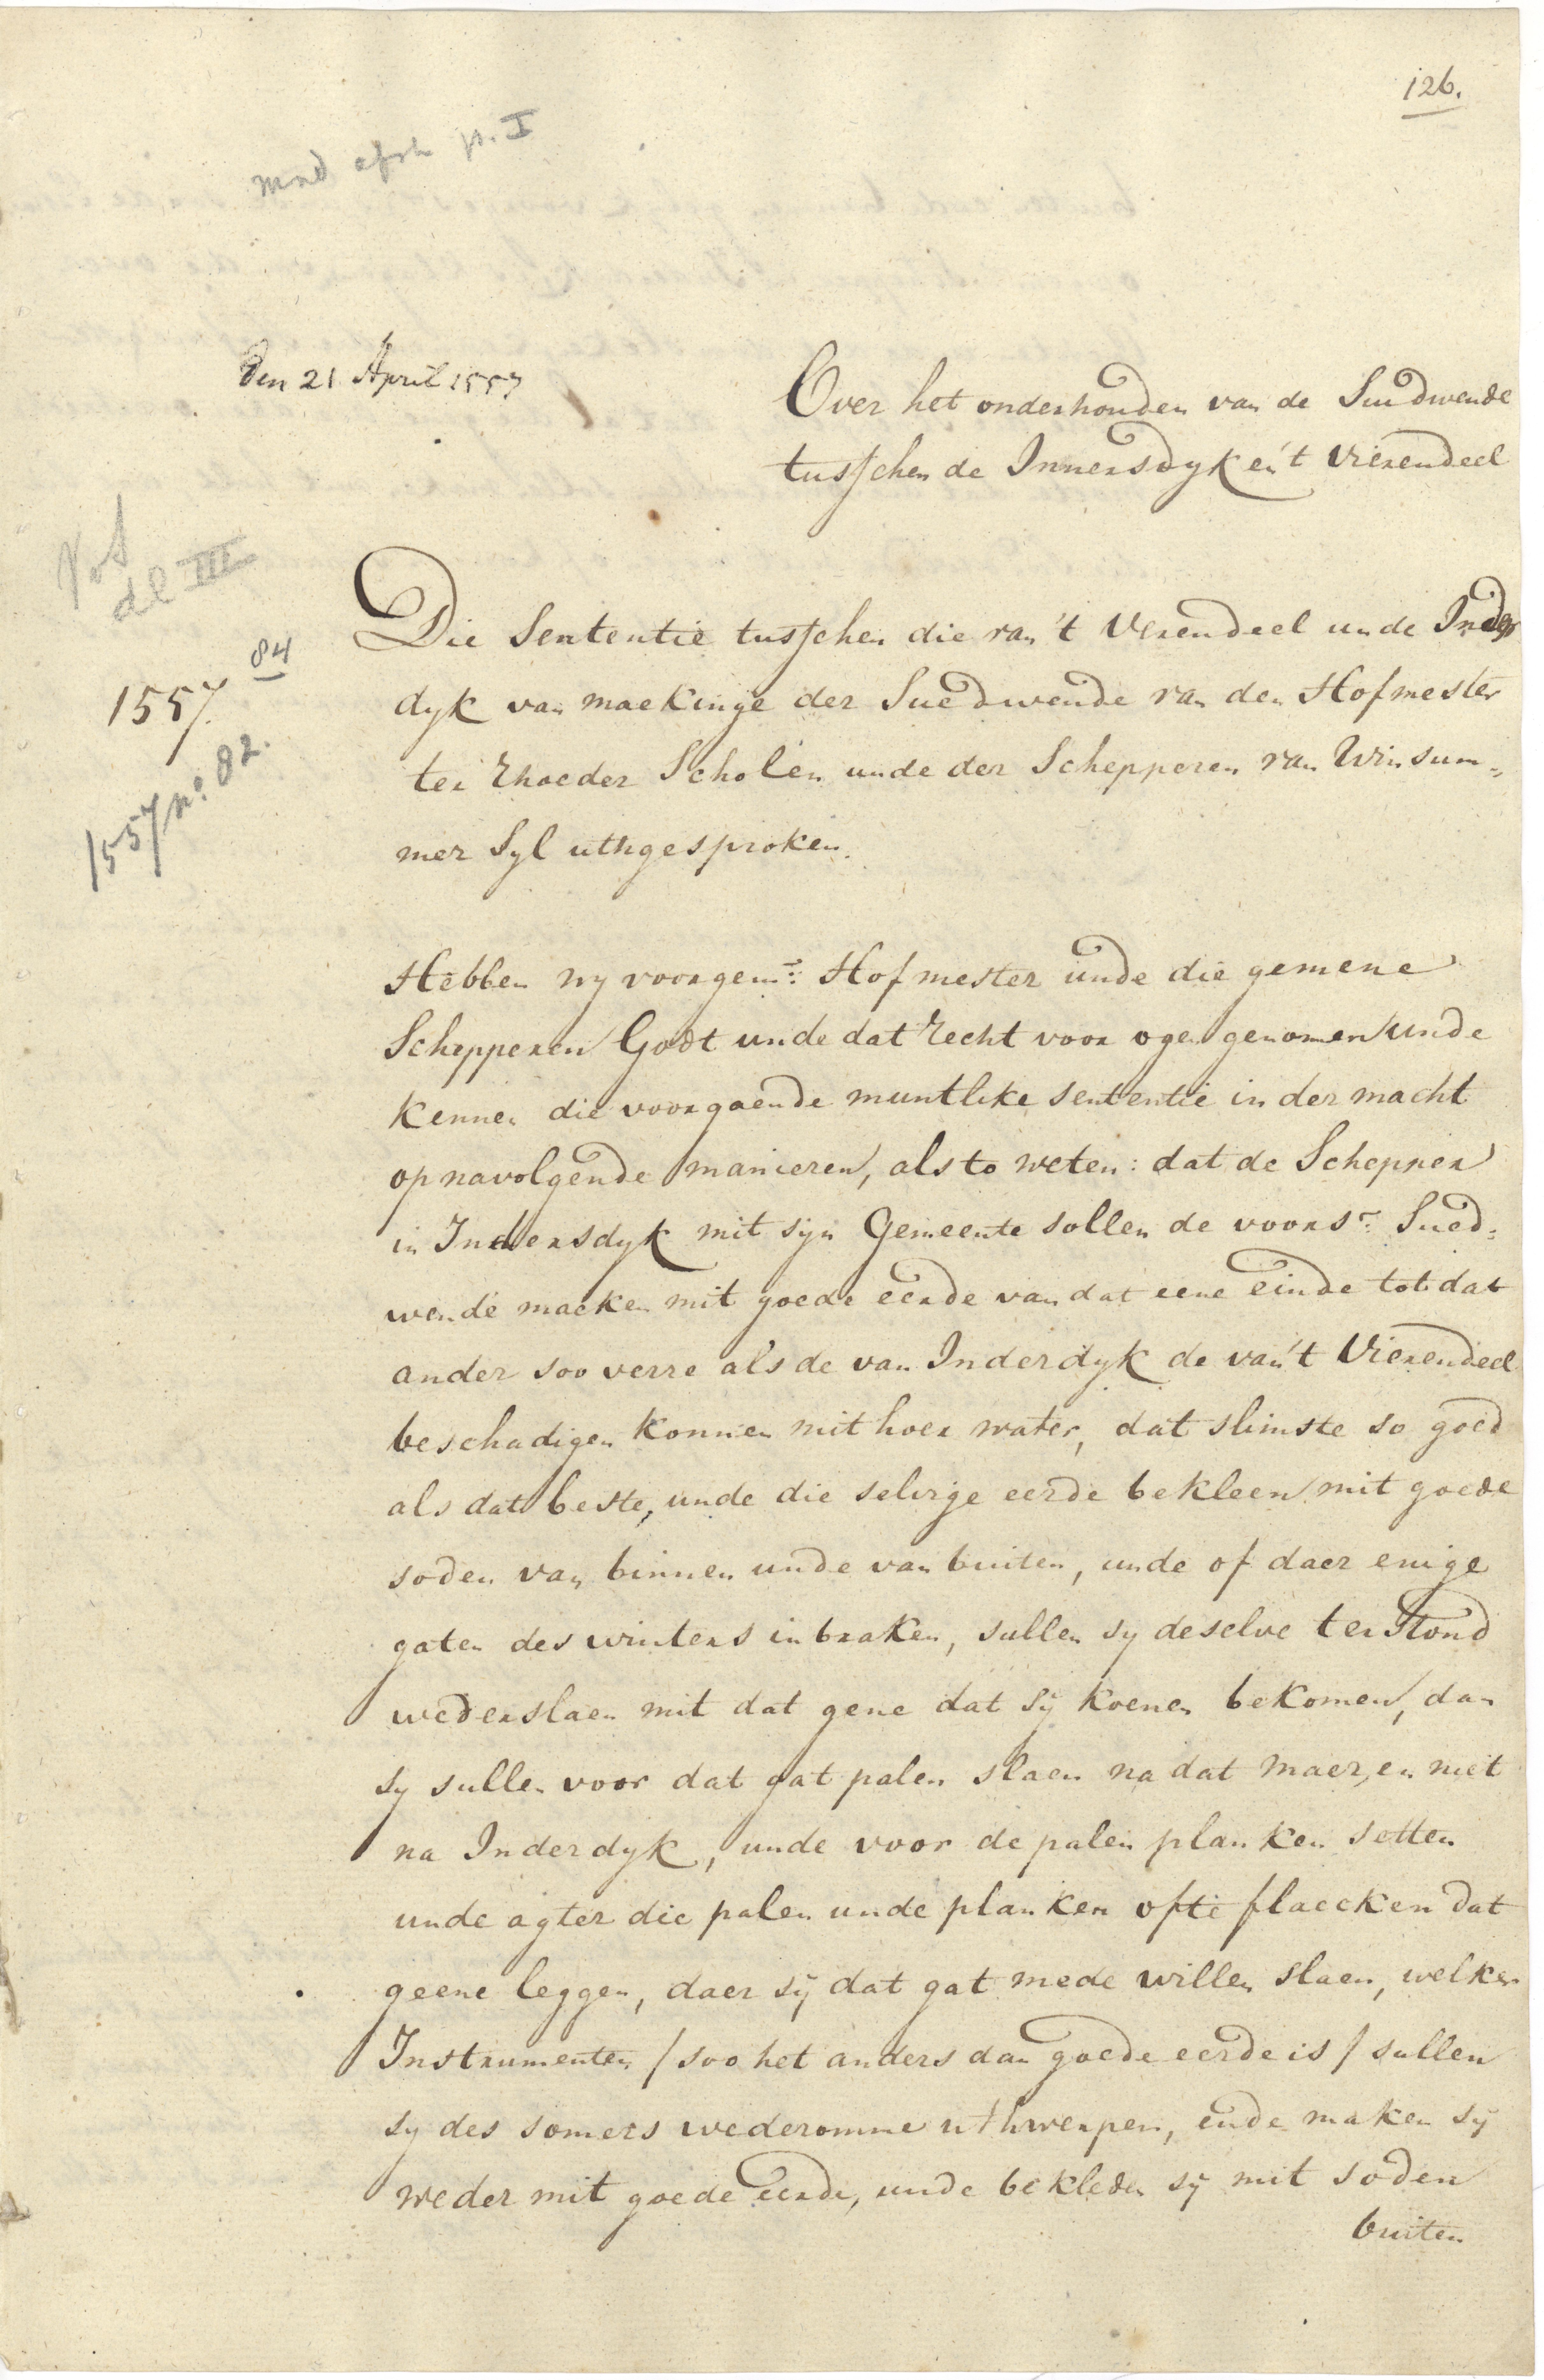 126.
mnd afsch p. I
Den 21 April 1557
Over het onderhouden van de Suedwende
tusschen de Innersdyk en 't Vierendeel
Vos
dl III
84
1557.
1557 no. 82.
Die Sententie tusschen die van 't Verendeel unde Inders
dyk van maekinge der Suedwende van den Hofmester
ter Rhoeder Scholen unde der Schepperen van Winsum=
mer Syl uthgesproken.
Hebben wy voorgem: Hofmester unde die gemene
Schepperen Godt unde dat recht voor ogen genomen unde
kennen die voorgaende muntlike sententie in der macht
op navolgende manieren, als to weten: dat de Schepper
in Indersdyk mit syn Gemeente sollen de voors: Sued=
wende maeken mit goede eerde van dat eene einde tot dat
ander soo verre als de van Inderdyk de van 't Vierendeel
beschadigen konnen mit hoer water, dat slimste so goed
als dat beste, unde die selvige eerde bekleen mit goede
soden van binnen unde van buiten, unde of daer enige
gaten des winters in braken, sullen sy deselve terstond
wederslaen mit dat gene dat sy koenen bekomen, dan
sy sullen voor dat gat palen slaen na dat maer, en niet
na Inderdyk, unde voor de palen planken setten
unde agter die palen unde planken ofte flaecken dat
geene leggen, daer sy dat gat mede willen slaen, welken
Instrumenten / soo het anders dan goede eerde is / sullen
sy des somers wederomme uthwerpen, ende maken sy
weder mit goede eerde, unde bekleden sy mit soden
buiten